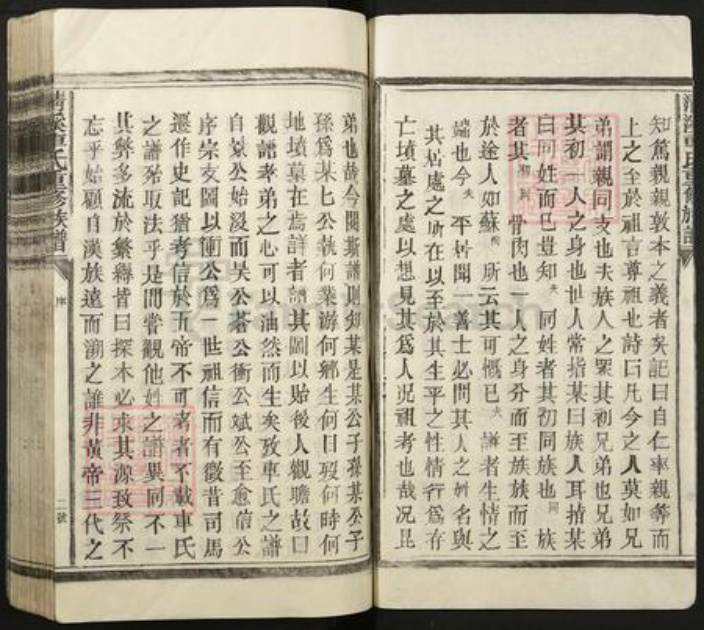 知篤親親敦本之義者矣記曰自仁率親等而
上之至於祖言尊祖也詩曰凡今之人莫如兄
弟謂親同支也夫族人之眾其初兄弟也兄弟
其初一人之身也世人常指某曰族人耳指某
曰同姓而已豈知夫同姓者其初同族也同族
者其初骨肉也一人之身分而至族族而至
於途人如蘇所云其可慨已夫譜者生情之
端也今夫平居聞一善士必問其人之姓名與
其居處之所在以至於其生平之性情行為存
亡墳墓之處以想見其為人况祖考也哉况昆
弟也哉今閱斯譜則知某是某公子孫某公子
孫為某七公執何業游何鄉生何日歿何時何
地墳墓在焉詳者譜其圖以貽後人觀瞻故曰
觀譜孝弟之心可以油然而生矣攷車氏之譜
自景公始浸而吳公蒼公衝公斌公至愈信公
序宗支圖以衝公爲一世祖信而有徵昔司馬
遷作史記猶考信於五帝不可考者不載車氏
之譜殆取法乎是間嘗觀他姓之譜異同不一
其弊多流於繁縟皆曰探本必求其源致祭不
忘乎始顧自漢族遠而溯之誰非黃帝三代之
清溪車氏重修族譜
序
二號